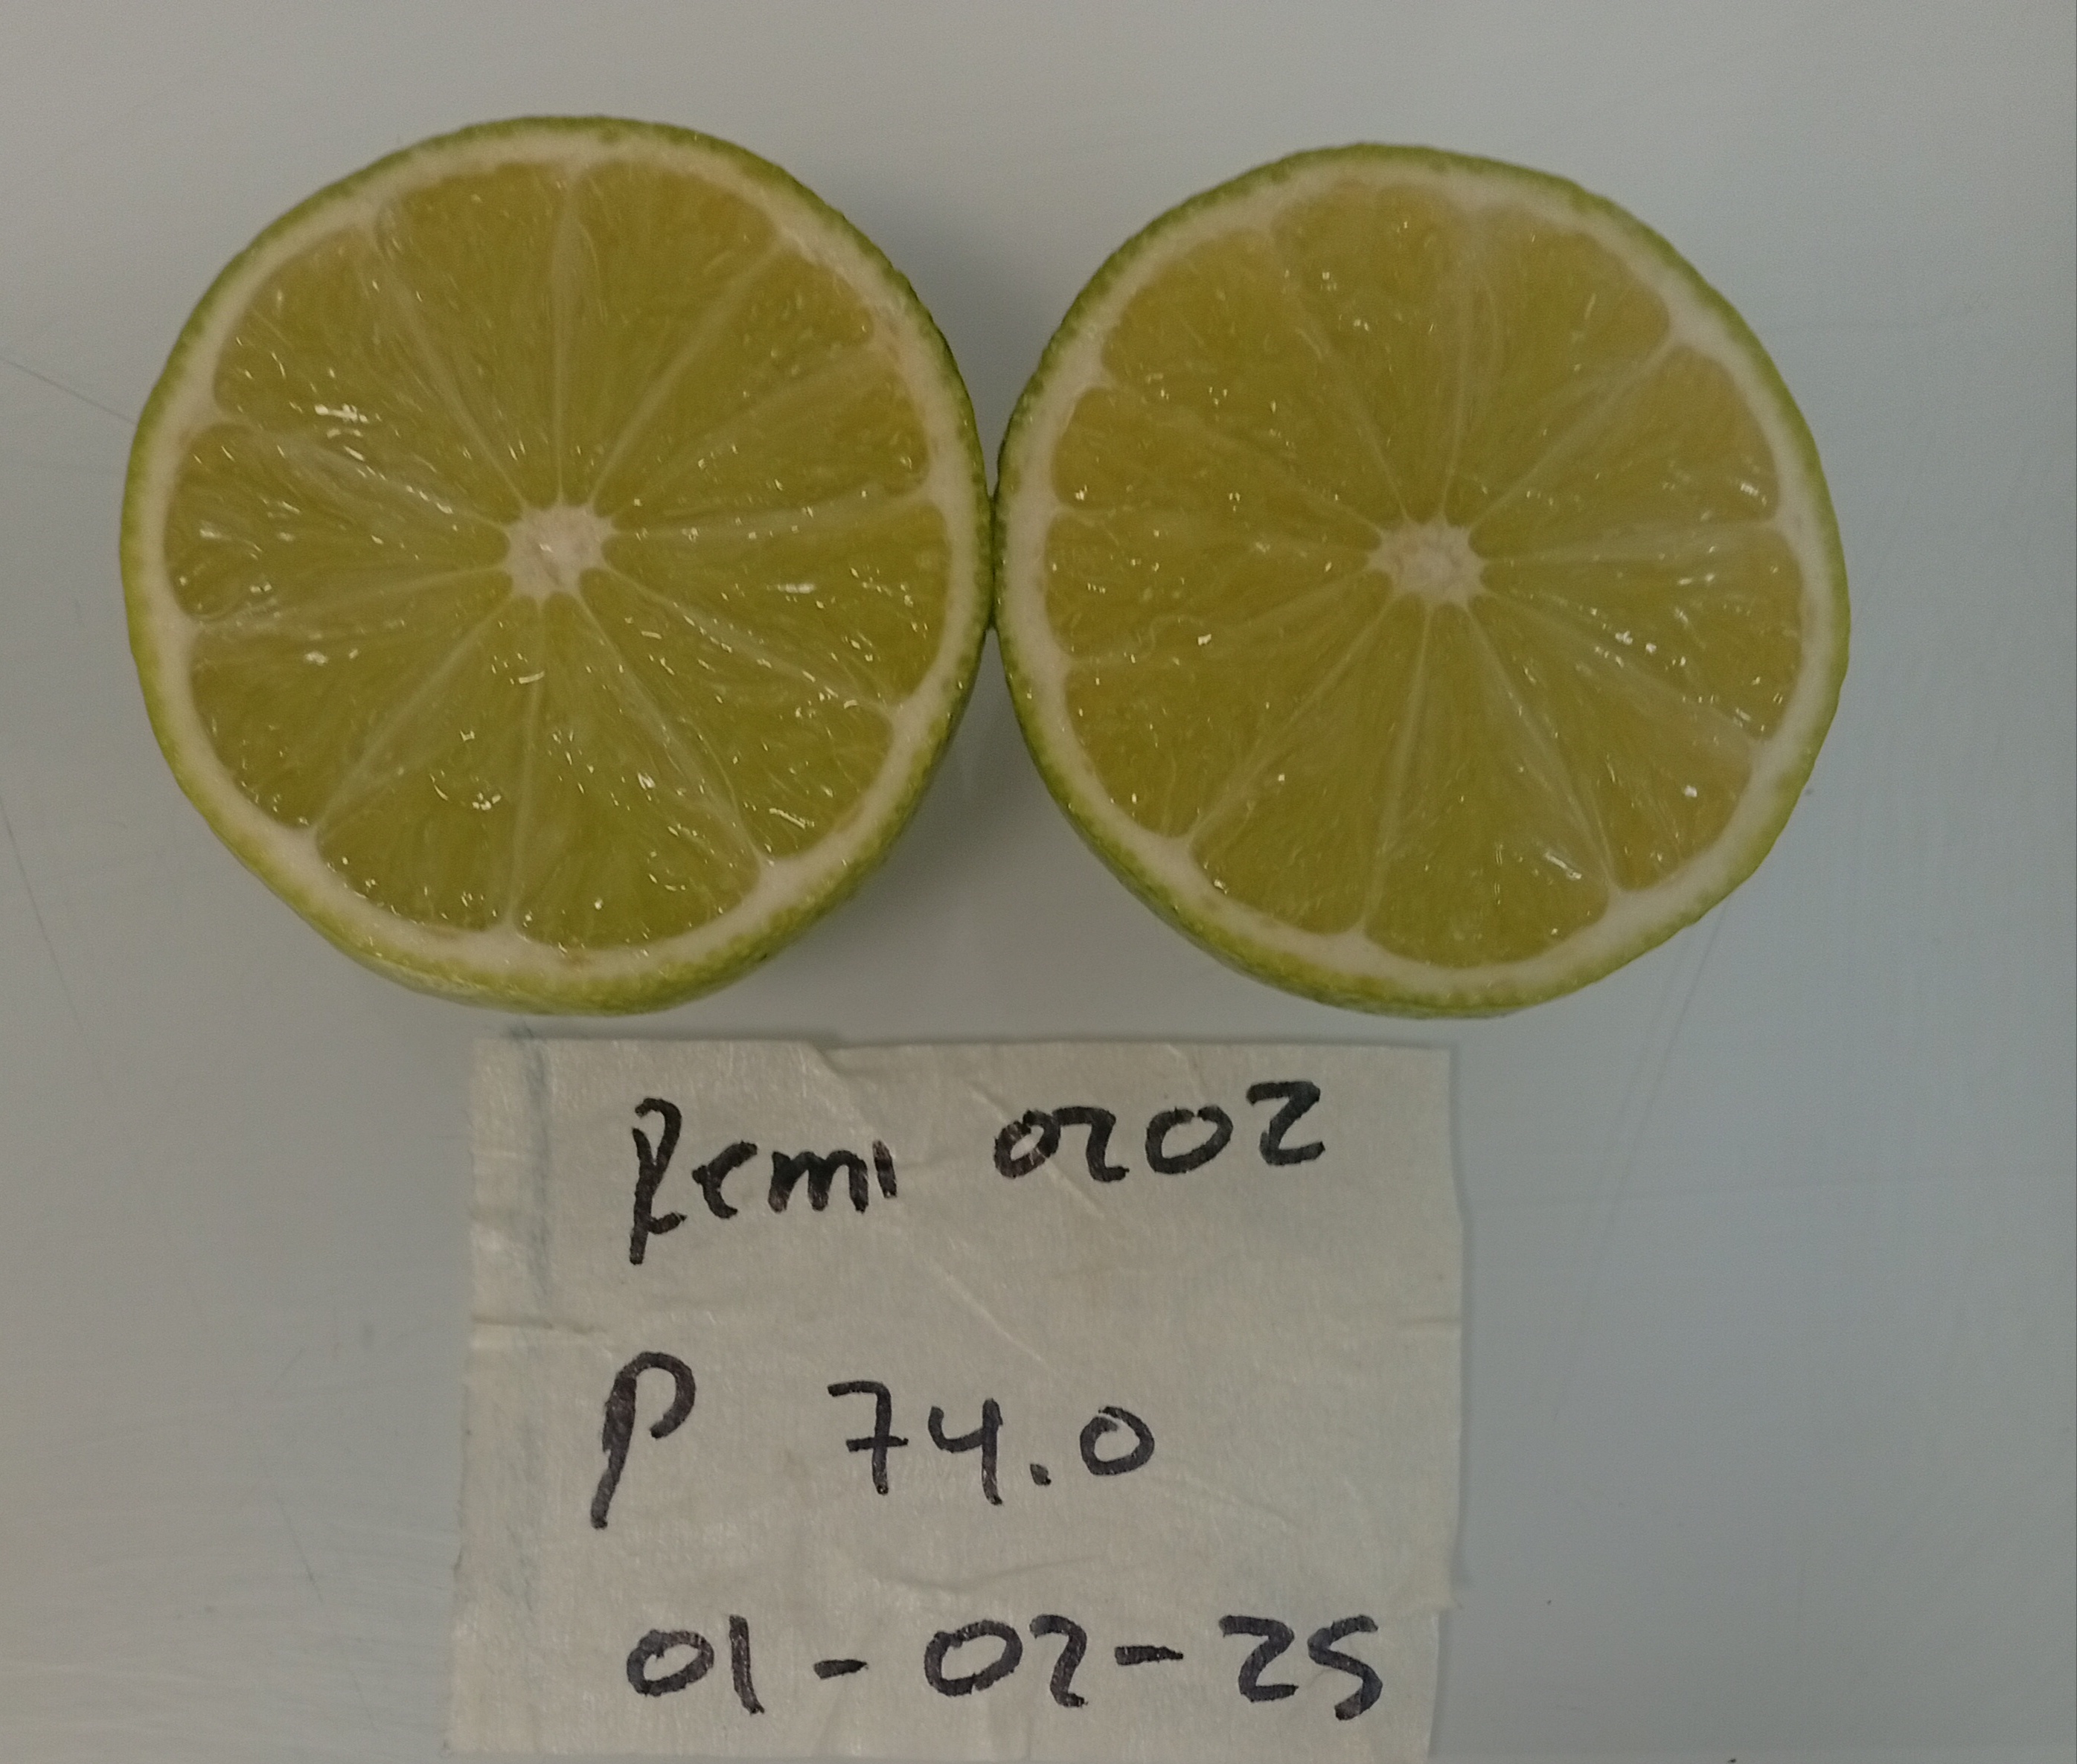 Remi 0202
P 74.0
01-02-25